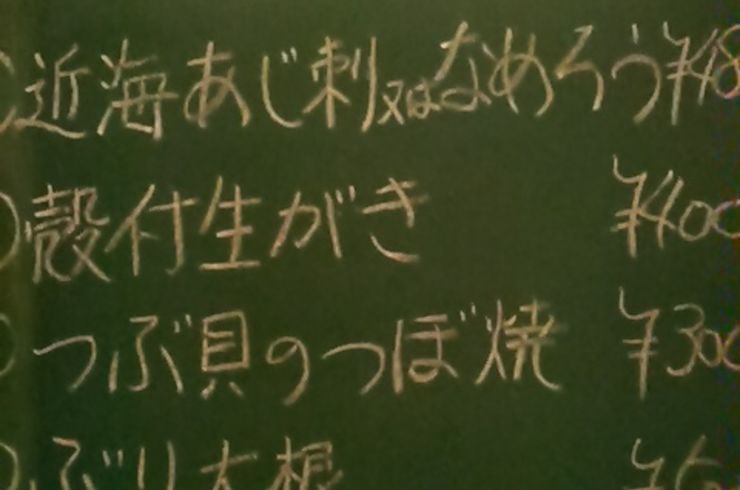 近海あじ刺又はなめろう ¥48
殻付生がき ¥400
つぶ貝のつぼ焼 ¥300
ぶり大根